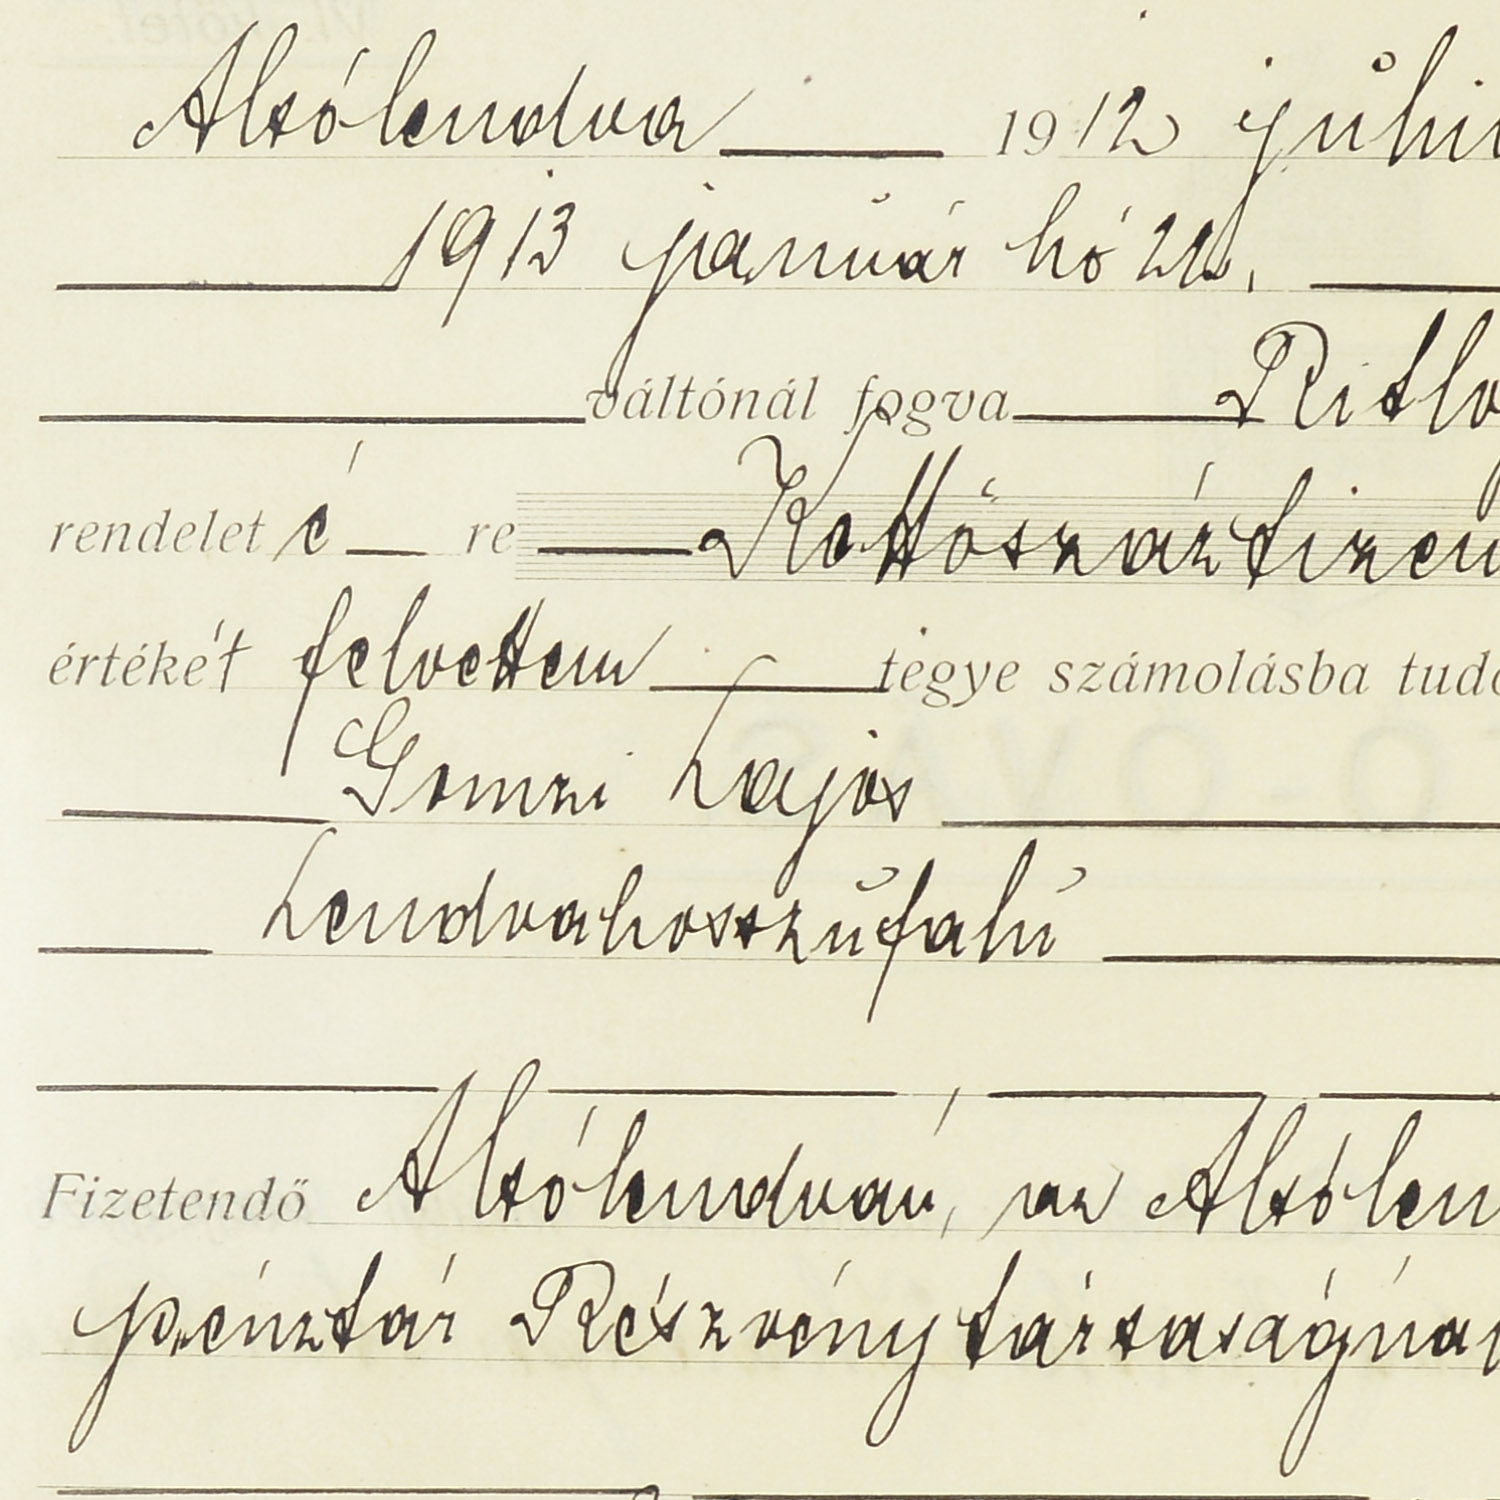 Alsólendva 1912 júli
1913 január hó
váltónál fogva
rendelet é re Kettőszáztizen
értékét felvettem tegye számolásba tudó
Gomzi Lajos
Lendvahosszúfalú
Fizetendő Alsólendván, az Alsólen
pénztár Részvénytársaságná